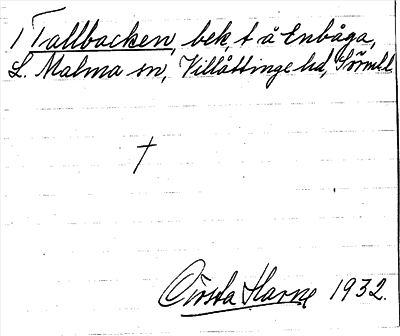 1 Tallbacken, bek. t å Enbåga,
L. Malma sn, Villåttinge hd, Sörmld
†
Harne 1932.